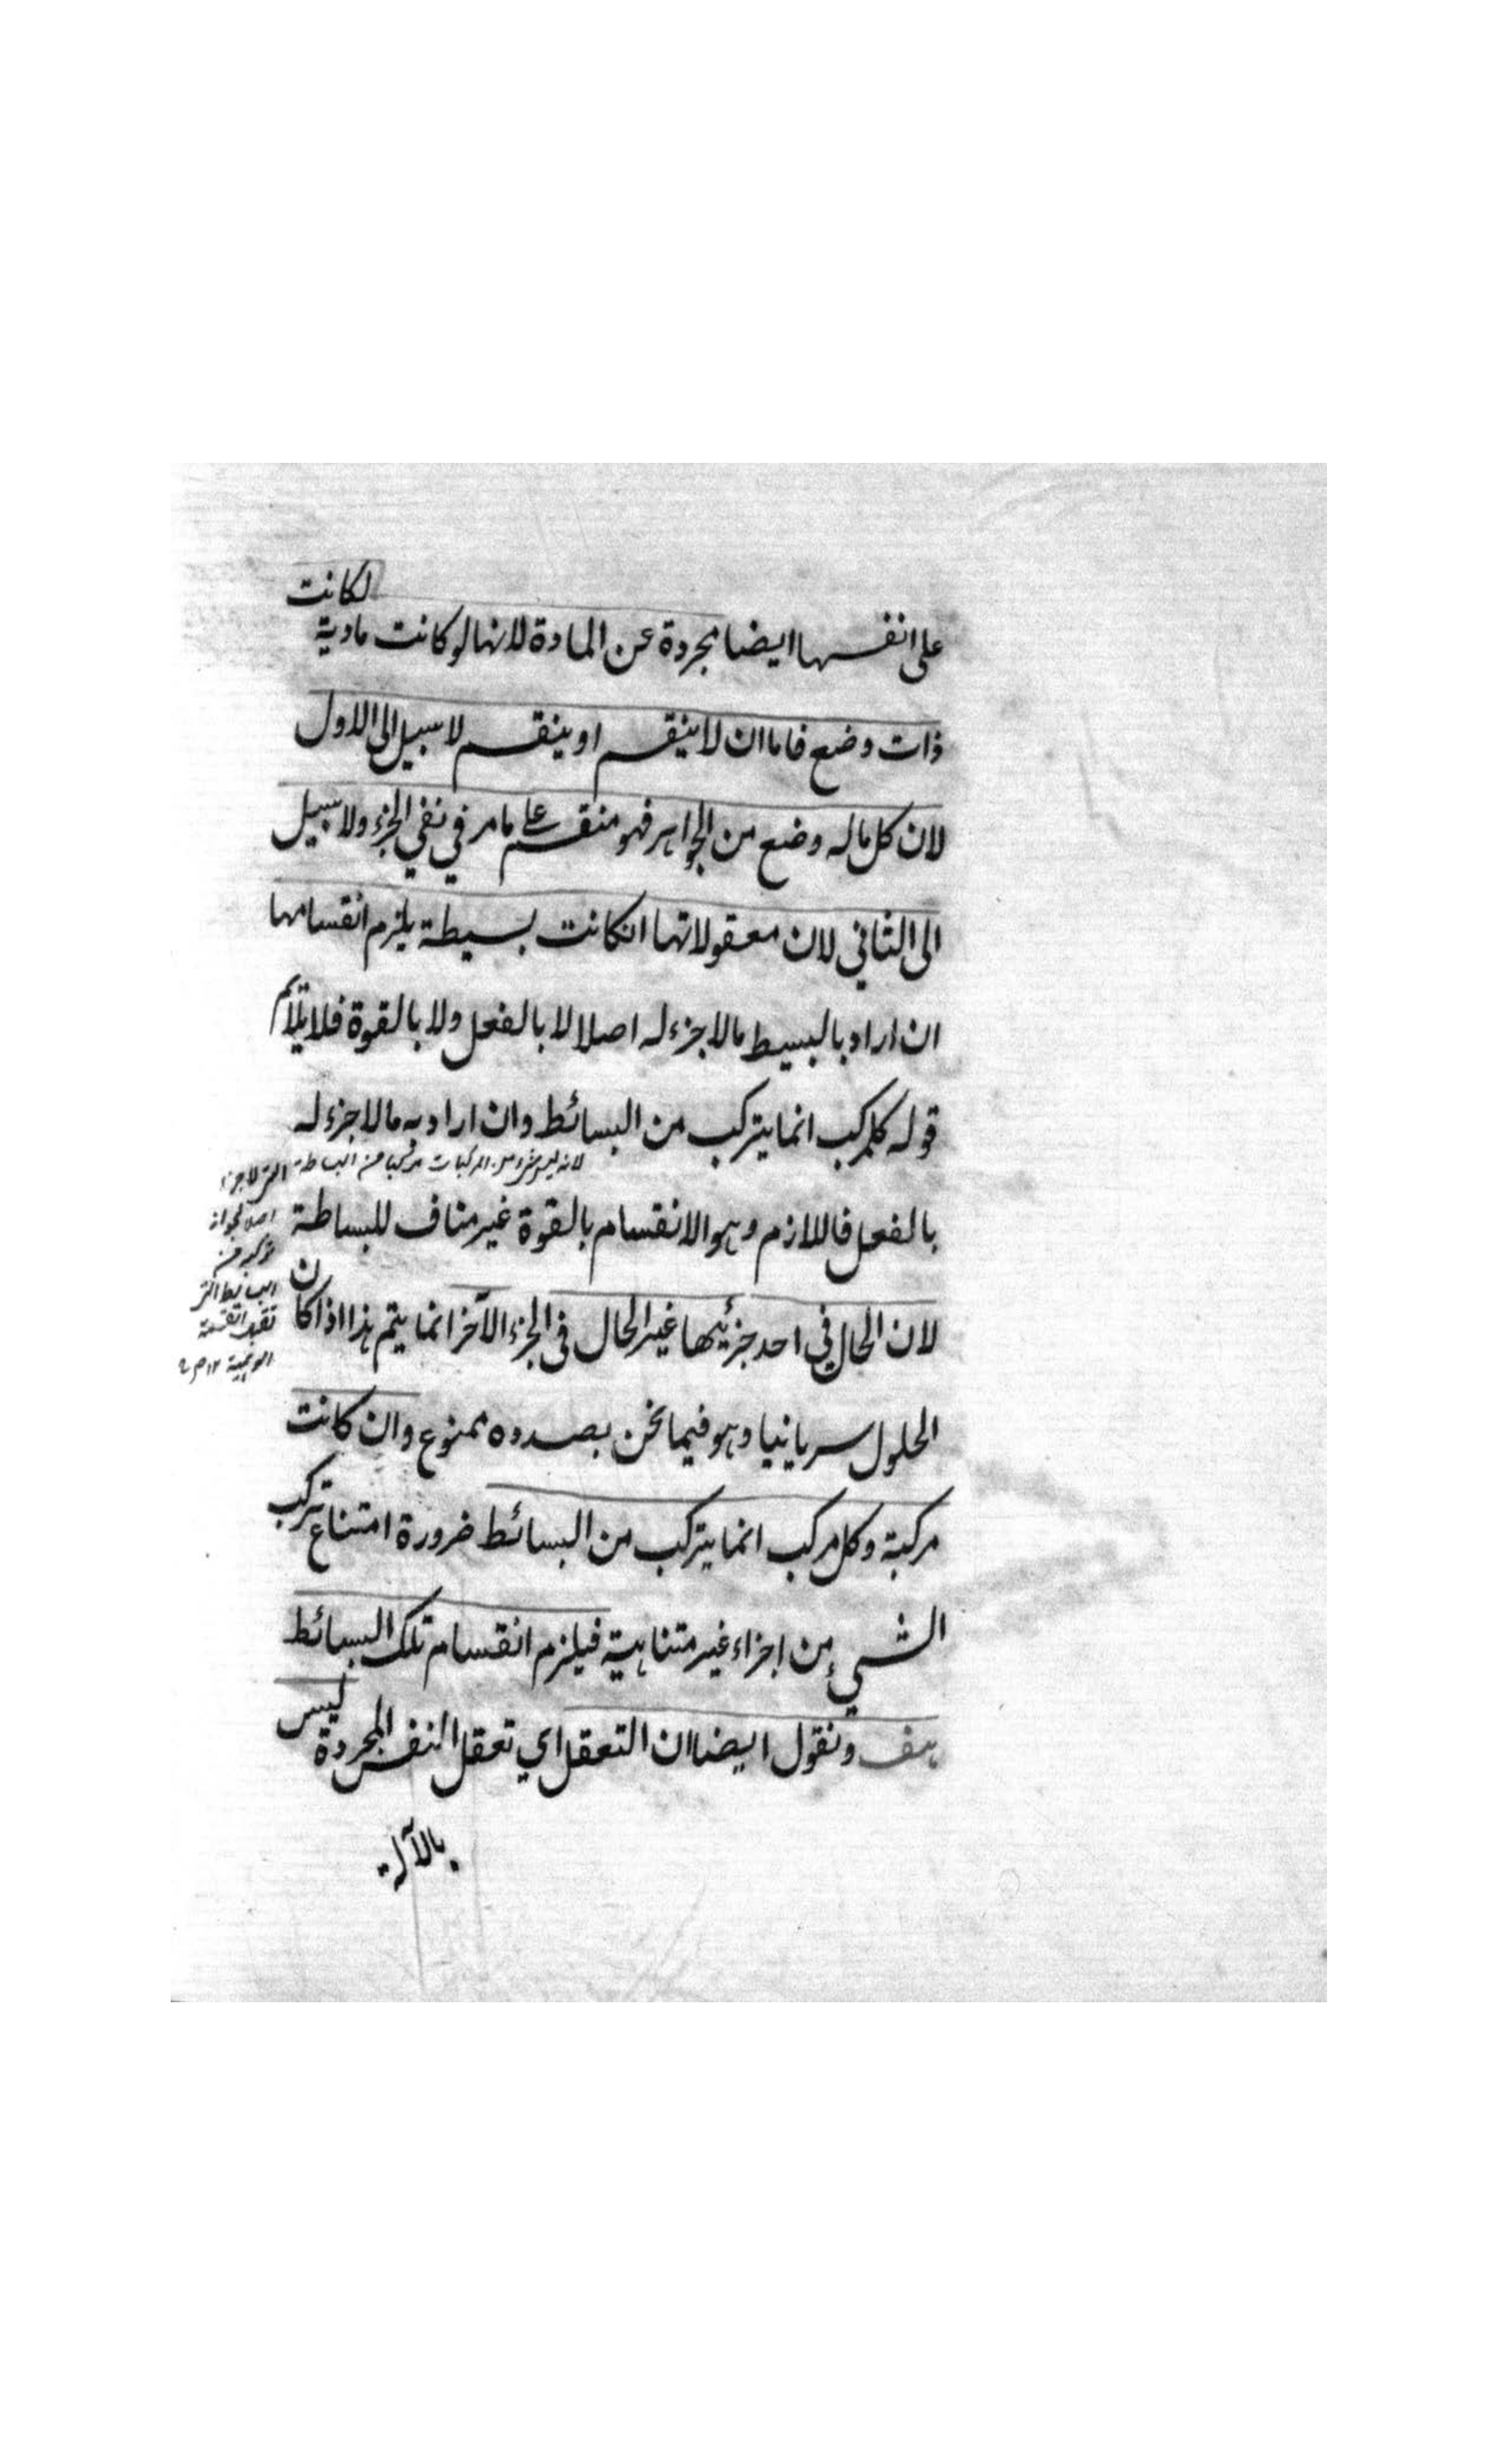 على انفسها ايضا مجردة عن المادة لانها لو كانت مادية لكانت
ذات وضع فاما ان لا ينقسم او ينقسم لا سبيل الى الاول
لان كل ماله وضع من الجواهر فهو منقسم على ما مر في نفي الجزء ولا سبيل
الى الثاني لان معقولاتها انكانت بسيطة يلزم انقسامها
ان اراد بالبسيط مالا جزء له اصلا لا بالفعل ولا بالقوة فلا يلائم
قوله كل مركب انما يتركب من البسائط وان اراد به مالا جزء له
بالفعل فاللازم وهو الانقسام بالقوة غير مناف للبساطة
لان الحال في احد جزئيها غير الحال في الجزء الآخر انما يتم هذا اذا كان
الحلول سريانيا وهو فيما نحن بصدده ممنوع وان كانت
مركبة وكل مركب انما يتركب من البسائط ضرورة امتناع تركب
الشيء من اجزاء غير متناهية فيلزم انقسام تلك البسائط
هف ونقول ايضا ان التعقل اي تعقل النفس المجردة ليس
بالآلة
لانه ليس من المركبات مركبا من